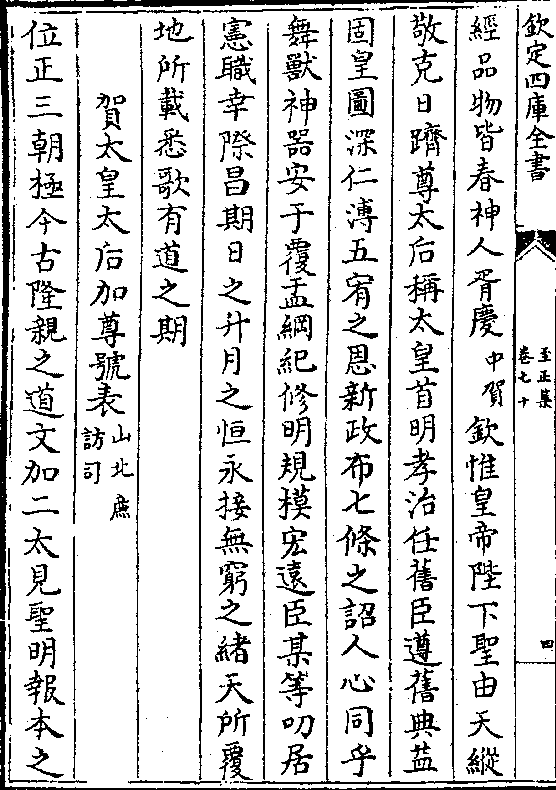 欽定四庫全書
至正集
卷七十
四
經品物皆春神人胥慶中賀欽惟皇帝陛下聖由天縱
敬克日躋尊太后稱太皇首明孝治任舊臣遵舊典益
固皇圖深仁溥五宥之恩新政布七條之詔人心同乎
舞獸神器安于覆盂綱紀修明規模宏遠臣某等叨居
憲職幸際昌期日之升月之恒永接無窮之緒天所覆
地所載悉歌有道之期
賀太皇太后加尊號表山北㢘訪司
位正三朝極今古隆親之道文加二太見聖明報本之